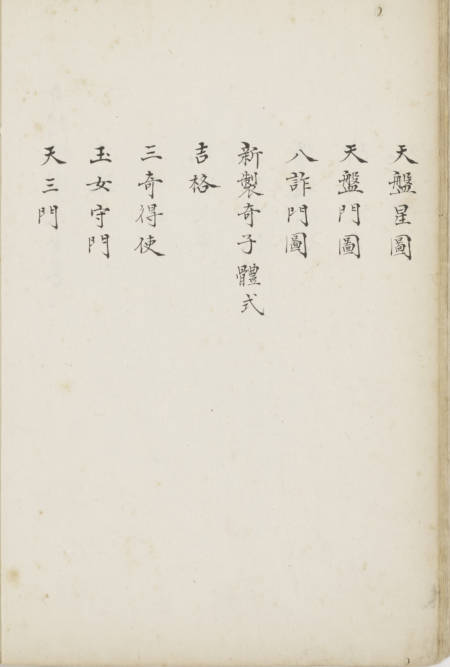 天盤星圖
天盤門圖
八詐門圖
新製奇子體式
吉格
三奇得使
玉女守門
天三門